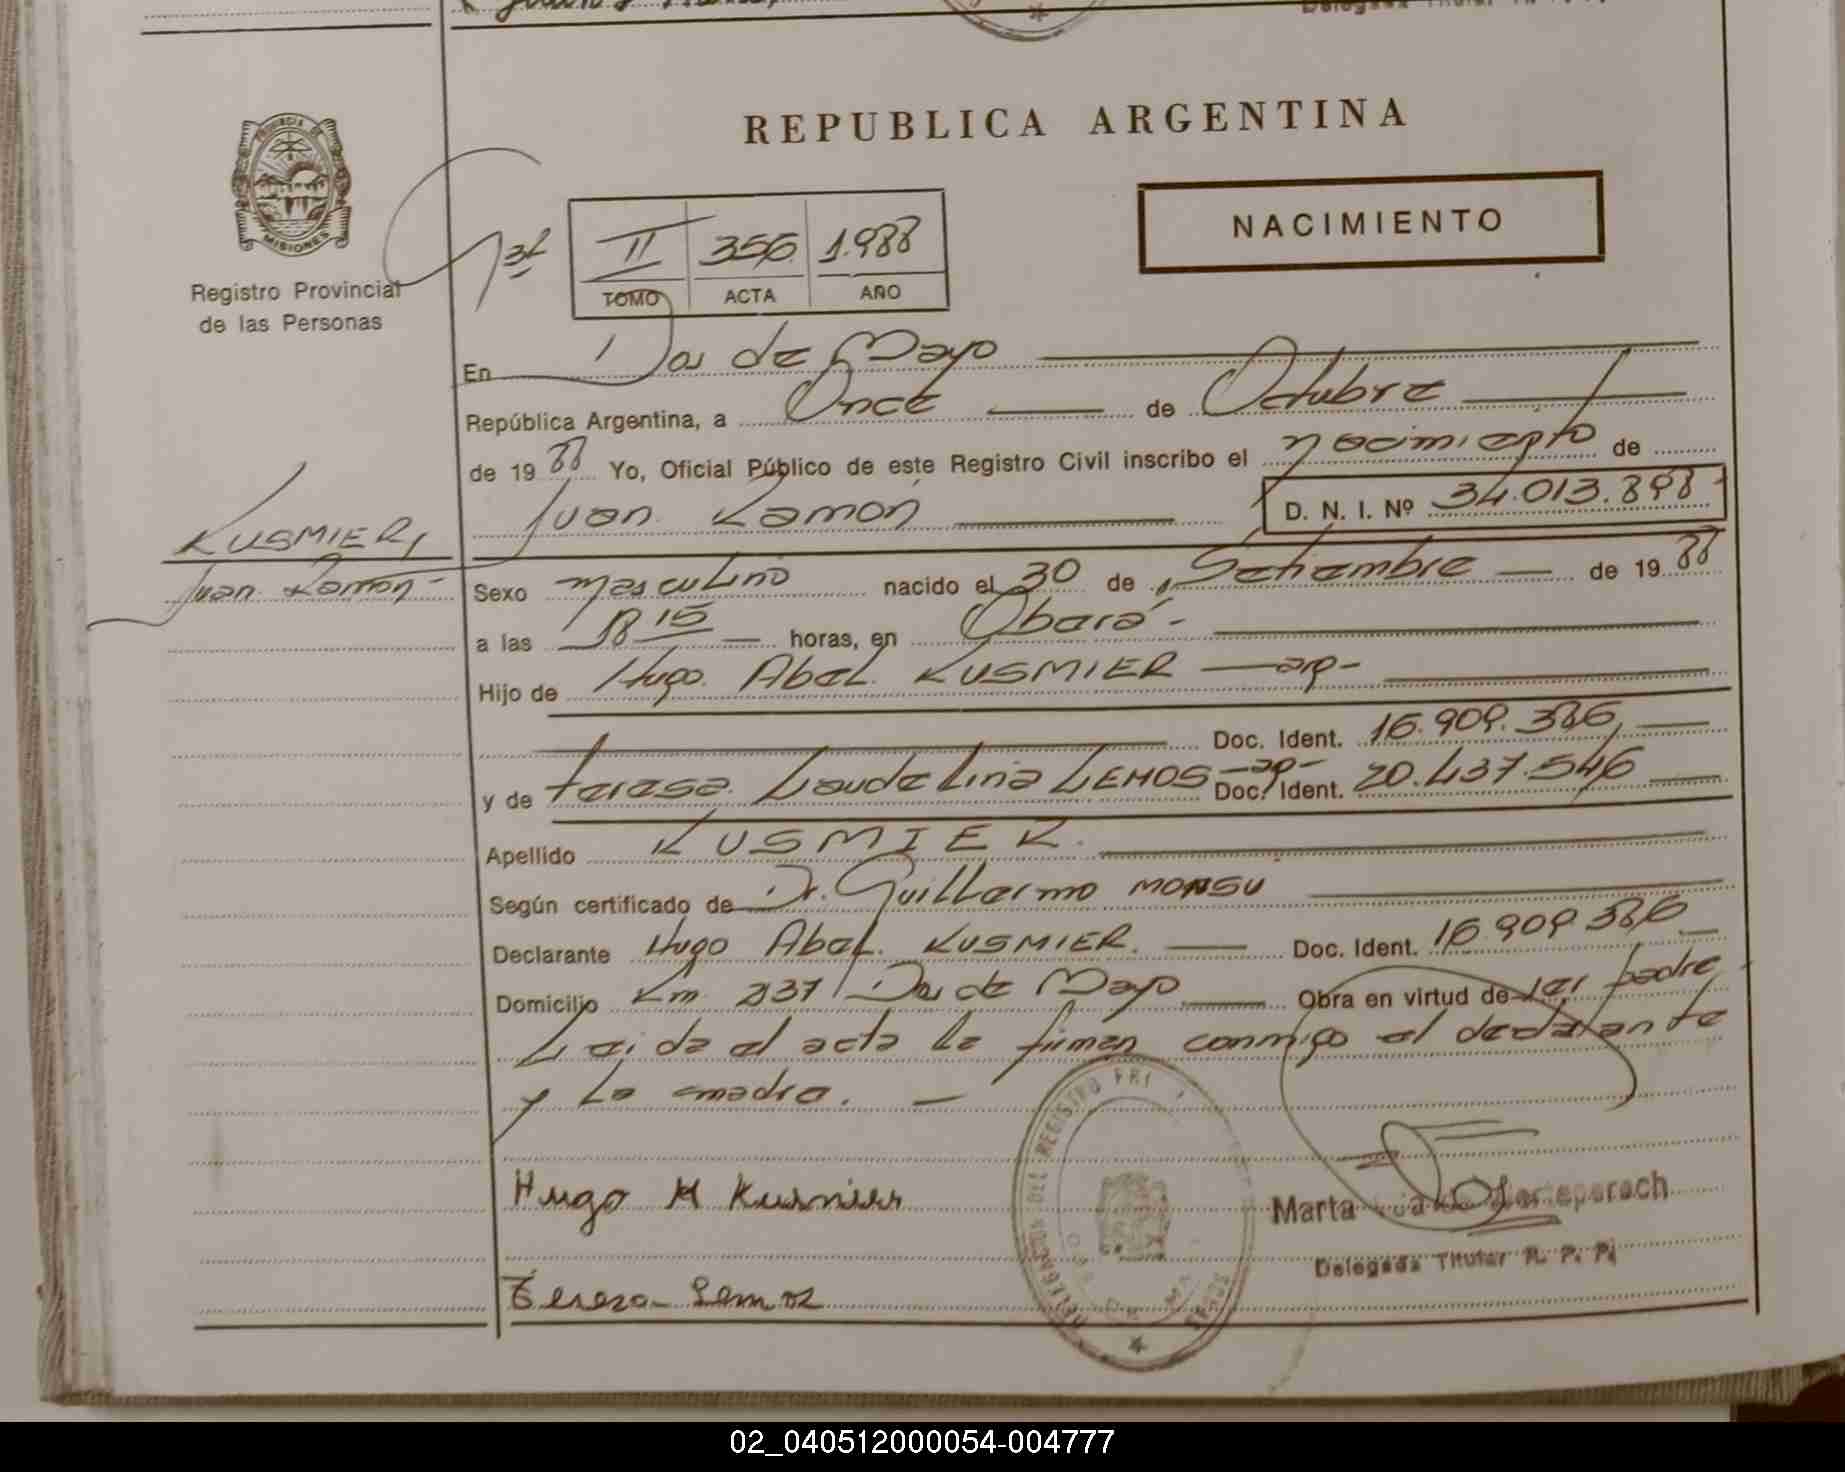 REPUBLICA ARGENTINA
PROVINCIA DE
MISIONES
Registro Provincial
de las Personas
II 356 1.988
TOMO ACTA AÑO
NACIMIENTO
En Dos de Mayo
República Argentina, a Once de Octubre
de 19 88 Yo, Oficial Público de este Registro Civil inscribo el nacimiento de
Juan Ramón D. N. I. Nº 34.013.898
KUSMIER,
Juan Ramon-
Sexo masculino nacido el 30 de Setiembre de 19 88
a las 18 15 horas, en Oberá-
Hijo de Hugo Abel KUSMIER -arg-
Doc. Ident. 16.909.386
y de Teresa Laudelina LEMOS -ag- Doc. Ident. 20.437.546
Apellido KUSMIER.
Según certificado de Dr. Guillermo MONSU
Declarante Hugo Abel KUSMIER. Doc. Ident. 16.909.386
Domicilio Km 237 Dos de Mayo Obra en virtud de ser padre
Leida el acta la firman conmigo el declarante
y la madre.
Hugo A Kusmier
Marta
Delegada Titular R. P. P.
Teresa Lemos
DEL REGISTRO
02_040512000054-004777